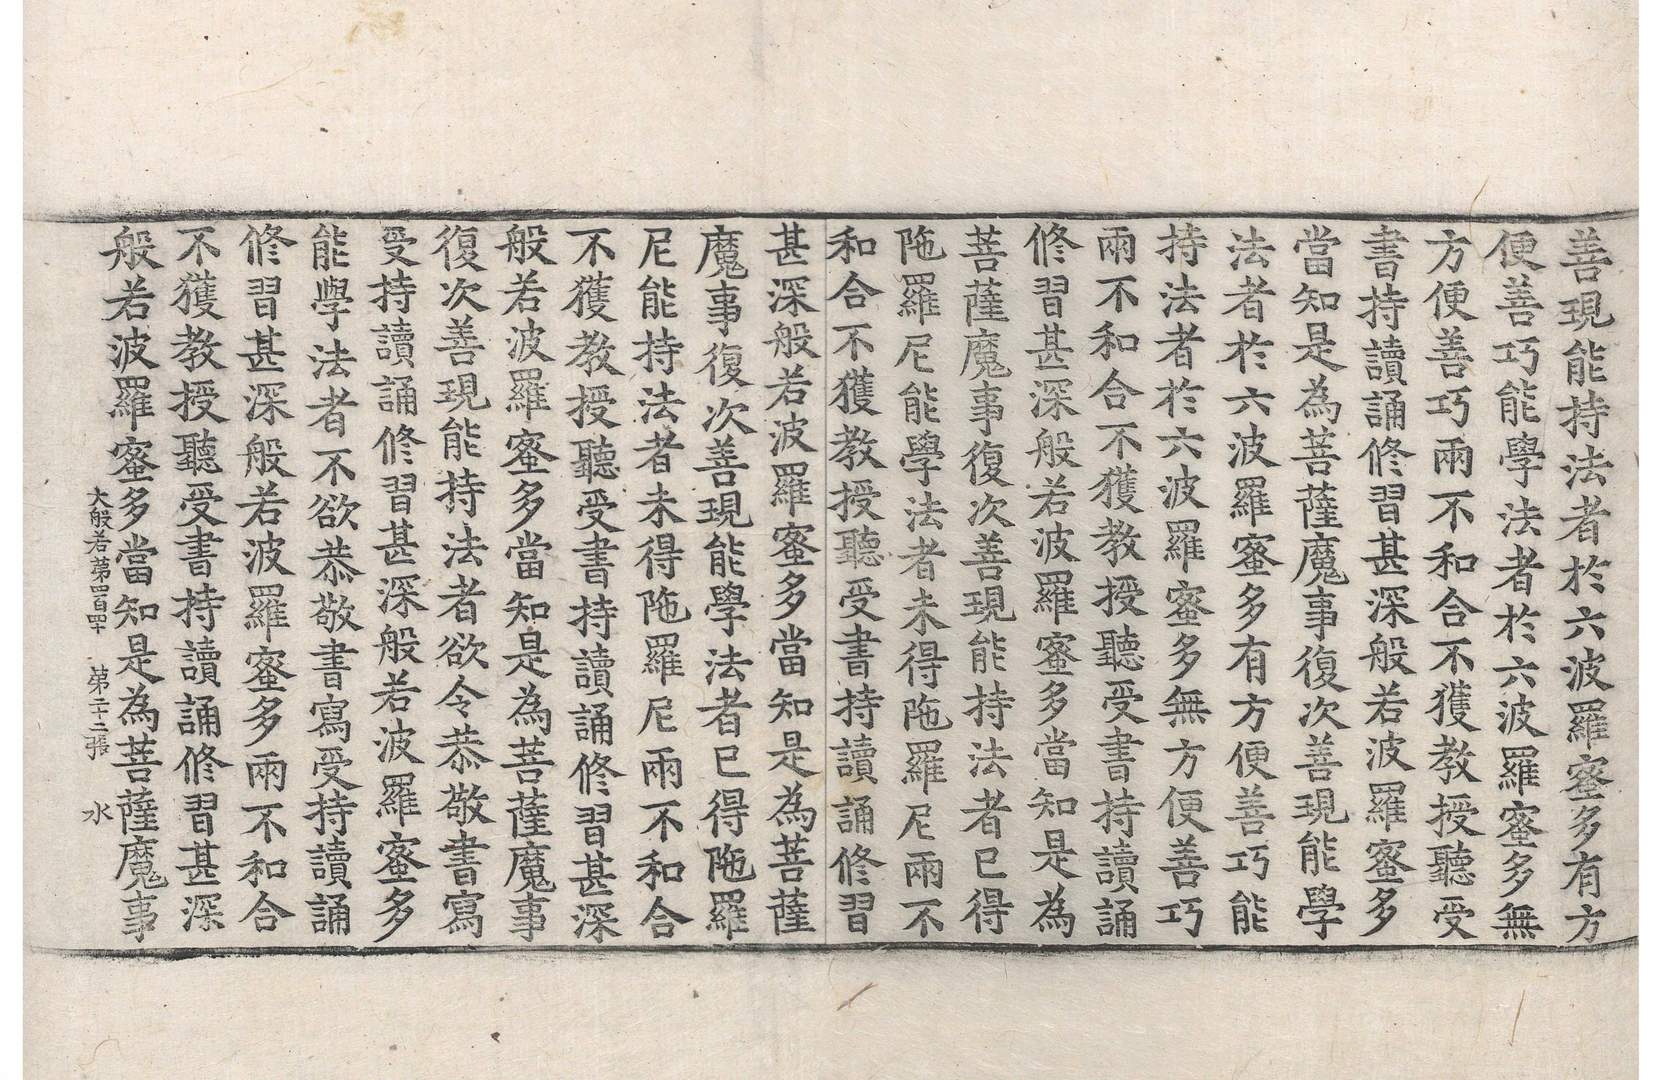 善現能持法者於六波羅蜜多有方
便善巧能學法者於六波羅蜜多無
方便善巧兩不和合不獲教授聽受
書持讀誦修習甚深般若波羅蜜多
當知是為菩薩魔事復次善現能學
法者於六波羅蜜多有方便善巧能
持法者於六波羅蜜多無方便善巧
兩不和合不獲教授聽受書持讀誦
修習甚深般若波羅蜜多當知是為
菩薩魔事復次善現能持法者已得
陁羅尼能學法者未得陁羅尼兩不
和合不獲教授聽受書持讀誦修習
甚深般若波羅蜜多當知是為菩薩
魔事復次善現能學法者已得陁羅
尼能持法者未得陁羅尼兩不和合
不獲教授聽受書持讀誦修習甚深
般若波羅蜜多當知是為菩薩魔事
復次善現能持法者欲令恭敬書寫
受持讀誦修習甚深般若波羅蜜多
能學法者不欲恭敬書寫受持讀誦
修習甚深般若波羅蜜多兩不和合
不獲教授聽受書持讀誦修習甚深
般若波羅蜜多當知是為菩薩魔事
大般若第四百四十 第二十二張 水